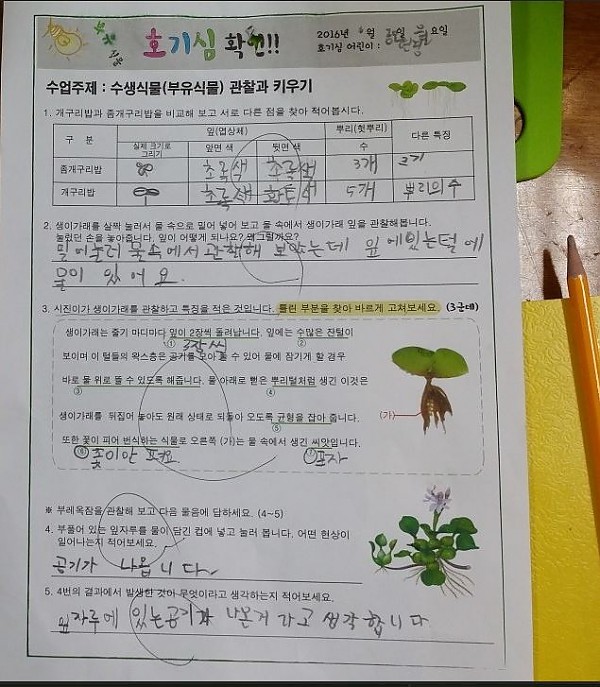 호기심 확인!!
2016년 4월 일 요일
호기심 어린이 :
수업주제 : 수생식물(부유식물) 관찰과 키우기
1. 개구리밥과 좀개구리밥을 비교해 보고 서로 다른 점을 찾아 적어봅시다.
구 분 잎(엽상체) 뿌리(헛뿌리) 다른 특징
실제 크기로 그리기 앞면 색 뒷면 색 수
좀개구리밥 초록색 초록색 3개 크기
개구리밥 초록색 5개 뿌리의 수
2. 생이가래를 살짝 눌러서 물 속으로 밀어 넣어 보고 물 속에서 생이가래 잎을 관찰해봅니다.
눌렀던 손을 놓아줍니다. 잎이 어떻게 되나요? 왜그럴까요?
물속에서 관찰해 보았는데 잎에있는털에
물이 있어요.
3. 시진이가 생이가래를 관찰하고 특징을 적은 것입니다. 틀린 부분을 찾아 바르게 고쳐보세요. (3군데)
생이가래는 줄기 마디마다 잎이 2장씩 돌려납니다. 잎에는 수많은 잔털이
① 3장씩 ②
보이며 이 털들의 왁스층은 공기를 모아 둘 수 있어 물에 잠기게 할 경우
바로 물 위로 뜰 수 있도록 해줍니다. 물 아래로 뻗은 뿌리털처럼 생긴 이것은
③ ④
생이가래를 뒤집어 놓아도 원래 상태로 되돌아 오도록 균형을 잡아 줍니다.
⑤
(가)
또한 꽃이 피어 번식하는 식물로 오른쪽 (가)는 물 속에서 생긴 씨앗입니다.
⑥ 꽃이안 펴요 ⑦ 포자
※ 부레옥잠을 관찰해 보고 다음 물음에 답하세요. (4~5)
4. 부풀어 있는 잎자루를 물이 담긴 컵에 넣고 눌러 봅니다. 어떤 현상이
일어나는지 적어보세요.
공기가 나옵니다~
5. 4번의 결과에서 발생한 것이 무엇이라고 생각하는지 적어보세요.
잎자루에 있는공기가 나온거라고 생각합니다